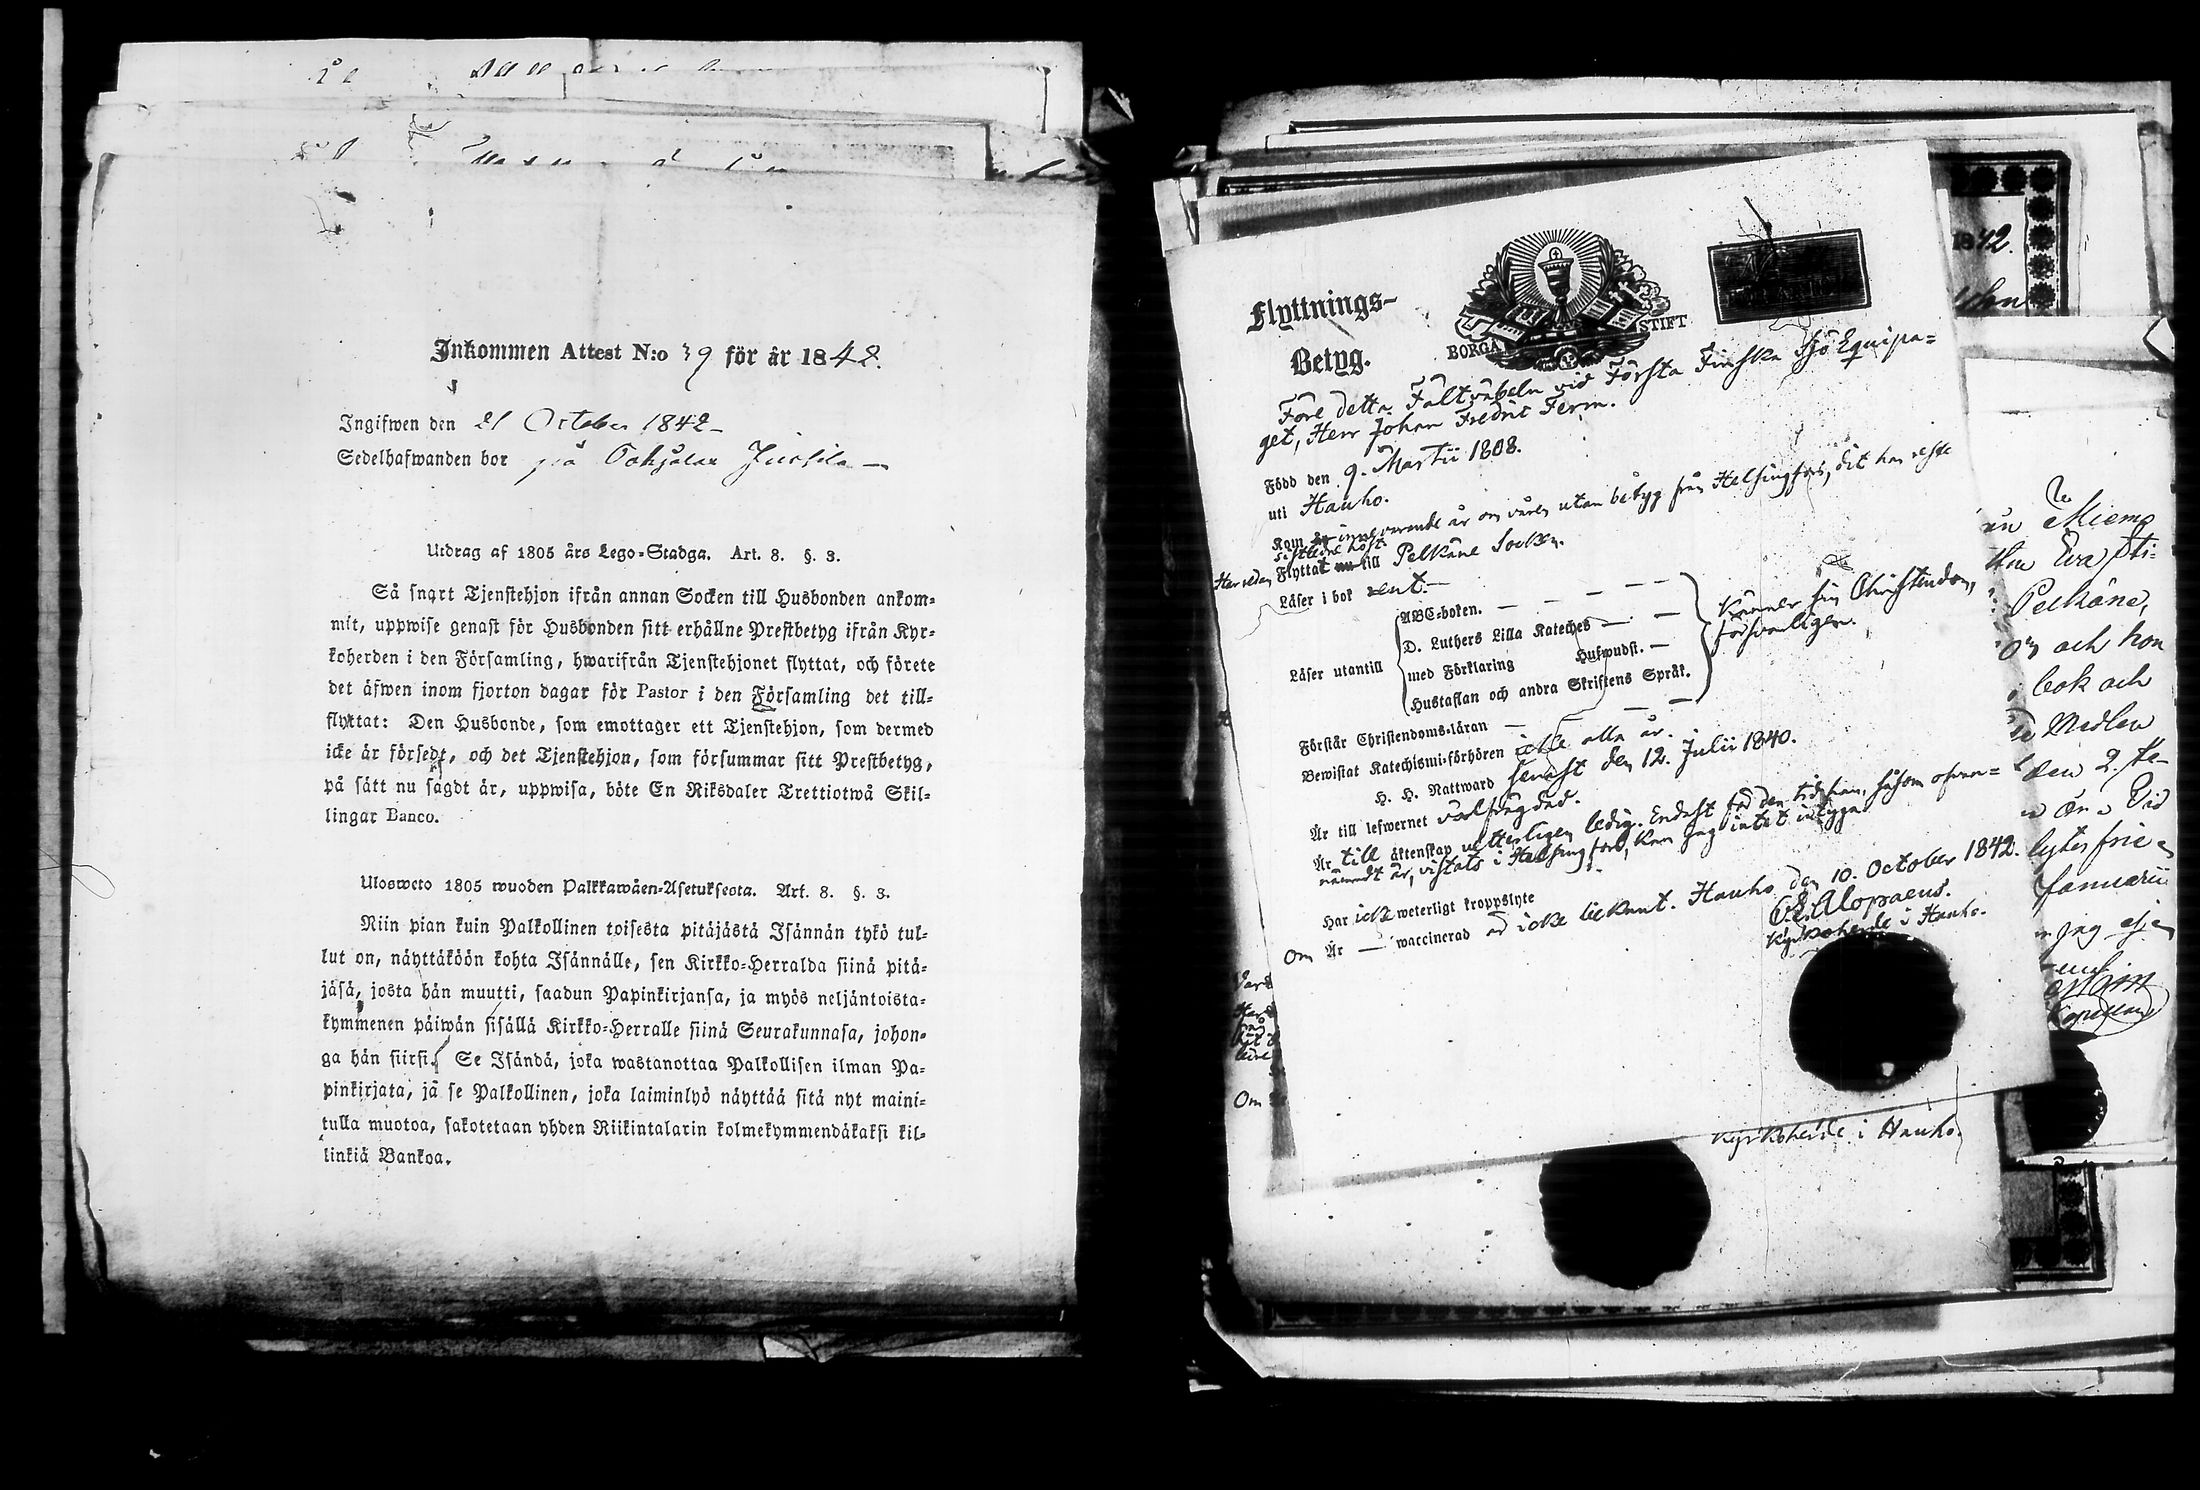 Inkommen Attest N:o 39 för år 1842.
Ingifwen den 21 October 1842
Sedelhafwanden bor på
Utdrag af 1805 års Lego-Stadga. Art. 8. §. 3.
Så snart Tjenstehjon ifrån annan Socken till Husbonden ankom-
mit, uppwise genast för Husbonden sitt erhållne Prestbetyg ifrån Kyr-
koherden i den Församling, hwarifrån Tjenstehjonet flyttat, och förete
det äfwen inom fjorton dagar för Pastor i den Församling det till-
flyttat: Den Husbonde, som emottager ett Tjenstehjon, som dermed
icke är försedt, och det Tjenstehjon, som försummar sitt Prestbetyg,
på sätt nu sagdt är, uppwisa, böte En Riksdaler Trettiotwå Skil-
lingar Banco.
Ulosweto 1805 wuoden Palkkawäen-Asetuksesta. Art. 8. §. 3.
Niin pian kuin Palkollinen toisesta pitäjästä Isännän tykö tul-
lut on, näyttäköön kohta Isännälle, sen Kirkko-Herralda siinä pitä-
jäsä, josta hän muutti, saadun Papinkirjansa, ja myös neljäntoista-
kymmenen päiwän sisällä Kirkko-Herralle siinä Seurakunnasa, johon-
ga hän siirsi. Se Isändä, joka wastanottaa Palkollisen ilman Pa-
pinkirjata, ja se Palkollinen, joka laiminlyö näyttää sitä nyt maini-
tulla muotoa, sakotetaan yhden Riikintalarin kolmekymmendäkaksi kil-
linkiä Bankoa.
Flyttnings-
Betyg.
BORGÅ STIFT
Före detta Fältväbeln vid Första Finska Sjö Equipa-
get, Herr Johan Fredrik Ferm.
Född den 9. Martii 1808.
uti Hauho.
Kom innevarande år om våren utan betyg från Helsingfors, dit han reste
sistledne höst.
Herredan Flyttat nu till Pelkäne Socken.
Läser i bok rent.
Läser utantill
ABC-boken.
D. Luthers Lilla Kateches
med Förklaring Hufwudst.
Hustaflan och andra Skriftens Språk.
Känner sin Christendom
försvarligen.
Förstår Christendoms-läran
Bewistat Katechismi-förhören icke alla år.
H. H. Nattward senast den 12. Julii 1840.
Är till lefwernet välfrägdad.
Är till äktenskap vetterligen ledig. Endast för den tid han, såsom ofvan-
nämndt är, vistats i Helsingfors, kan jag intet intyga.
Har icke weterligt kroppslyte
Om Är waccinerad är icke bekant. Hauho den 10. October 1842.
Alopaeus.
Kyrkoherde i Hauho.
Kyrkoherde i Hauho.
1842.
Eva
Pelkäne,
och hon
bok och
Medlen
den 2.
Januarii
Om